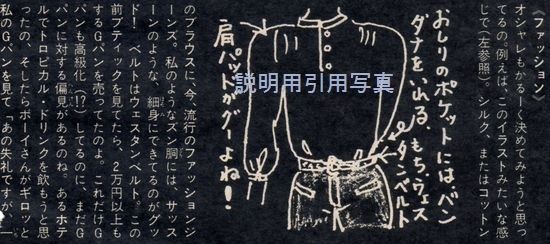 〈ファッション〉
オシャレもかるーく決めてみようと思っ
てるの。例えば、このイラストみたいな感
じで(左参照)。シルク、またはコットン
おしりのポケットには、バン
ダナをいれる。もち、ウェス
タンベルト
肩パットがグーよね!
説明用引用写真
のブラウスに、今、流行のファッションジ
ーンズ。私のようなズン胴には、サッス
ーンのような、細身にできてるのがグッ
ド! ベルトはウェスタンベルト。この
前ブティックを見てたら、2万円以上も
するGパンを売ってたのよ。これだけG
パンも高級化(!?)してるのに、まだG
パンに対する偏見があるのね。あるホテ
ルでトロピカル・ドリンクを飲もうと思
ったの。そしたらボーイさんがギロッと
私のGパンを見て「あの失礼ですが、―